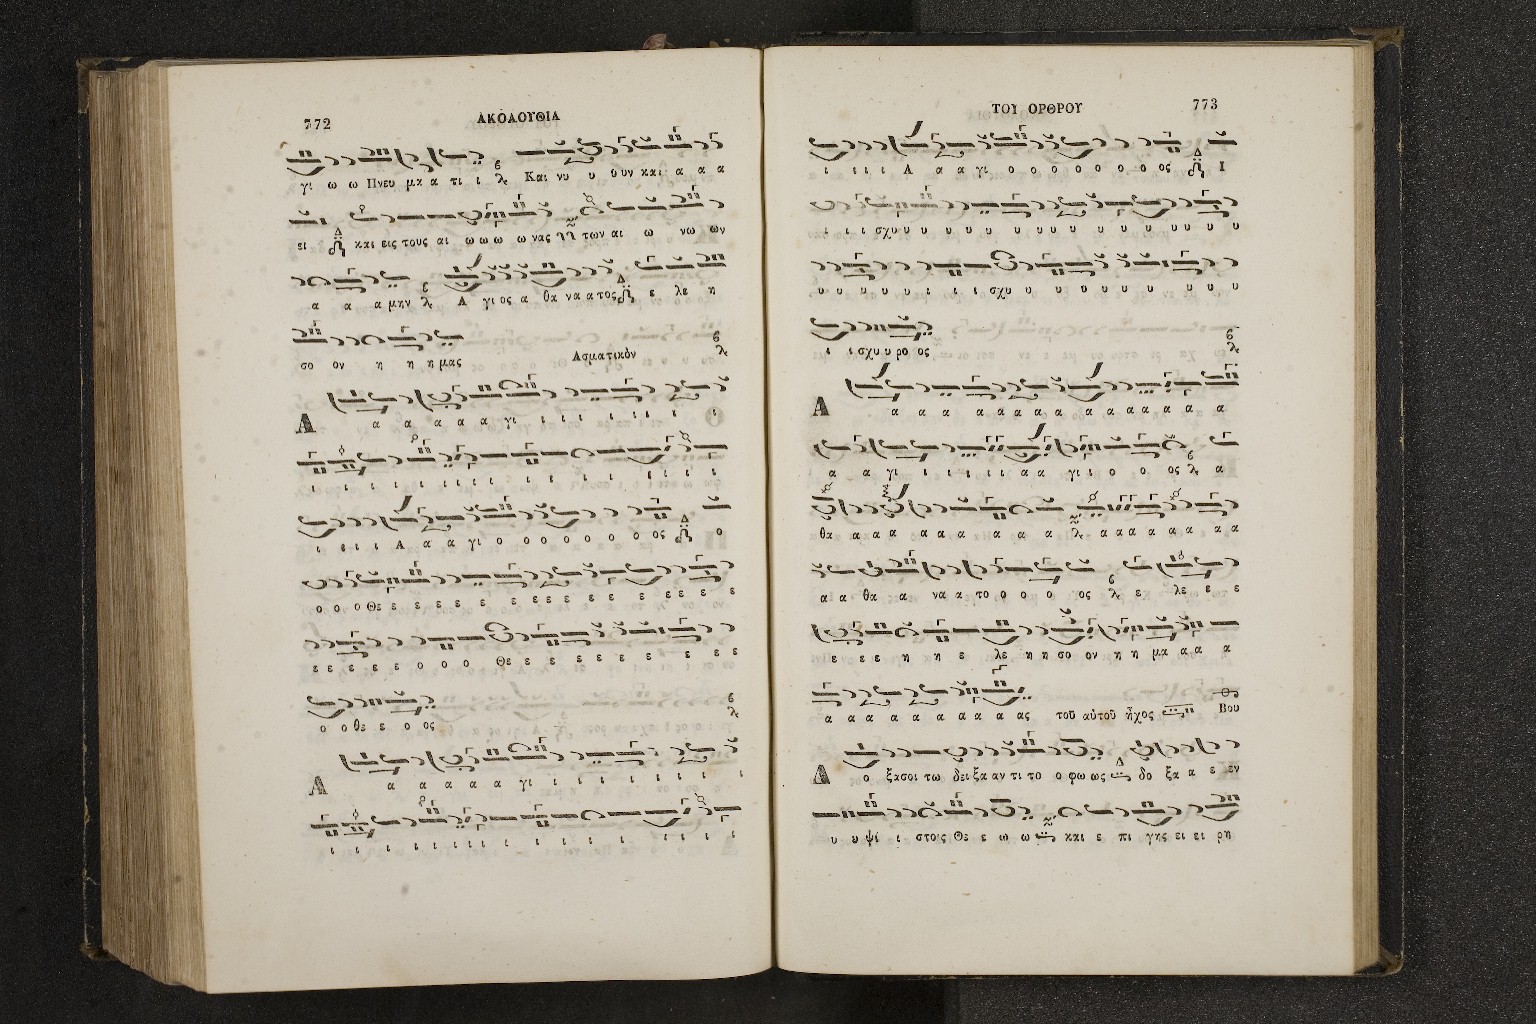 772
ΑΚΟΛΟΥΘΙΑ
γι ω ω Πνευ μα α τι ι Και νυ υ υυν και α α α
ει και εις τους αι ω ω ω ω νας των αι ω νω ων
α α α μην Α γι ος α θα να α τος ε λε η
σο ον η η η μας Ασματικὸν
Α α α α α α γι ι ι ι ι ι ι ι ι
ι ι ι ι ι ι ι ι ι ι ι ι ι ι ι ι
ι ει ι ι Α α α γι ο ο ο ο ο ο ο ος ο
ο ο ο Θε ε ε ε ε ε ε ε ε ε ε ε ε ε ε ε
ε ε ε ε ε ε ο ο ο Θε ε ε ε ε ε ε ε ε ε
ο ο θε ε ε ο ος
Α α α α α α γι ι ι ι ι ι ι ι ι
ι ι ι ι ι ι ι ι ι ι ι ι ι ι ι ι
ΤΟΥ ΟΡΘΡΟΥ
773
ι ι ι ι Α α α γι ο ο ο ο ο ο ο ος Ι
ι ι ι σχυ υ υ υ υ υ υ υ υ υ υ υ υ υ υ υ
υ υ υ υ υ υ ι ι ι σχυ υ υ υ υ υ υ υ υ υ
ι ι σχυ υ ρο ος
Α α α α α α α α α α α α α α α α
α α γι ι ι ι ι ι α α γι ι ο ο ος α
θα α α α α α α α α α α α α α α α α
α α θα α να α το ο ο ο ος ε λε ε ε
ε ε ε η η ε λε η η σο ον η η μα α α α
α α α α α α α α α α ας τοῦ αὐτοῦ ἦχος Βου
Δ ο ξασοι τω δει ξα αν τι το ο φω ως δο ξα α ε εν
υ υ ψί ι στοις Θε ε ω ω και ε πι γης ει ει ρη